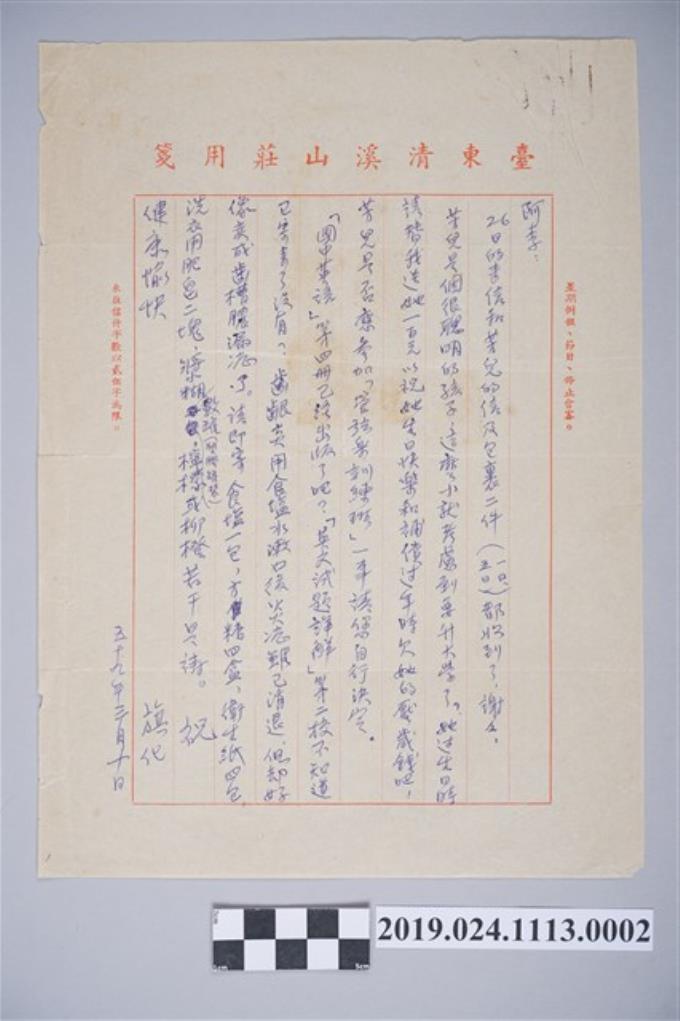 臺東清溪山莊用箋
星期例假、節日、停止會客。
阿李：
26日的李信和芳兒的信及包裹二件（一日、五日）都收到了，謝謝。
芳兒是個很聰明的孩子，這麼小就考慮到要升大學了，她過生日時
請替我送她一百元以祝她生日快樂和補償過年時欠她的壓歲錢吧！
芳兒是否要參加「管弦樂訓練班」一事請您自行決定。
「國中英語」第四冊已經出版了吧？「英文試題詳解」第二校不知道
已寄去了沒有？齒齦炎用食塩水漱口後炎症雖已清退，但却好
像變成齒槽膿漏症了。請即寄食塩一包，方糖四盒、衛生紙四包，
洗衣用肥皂二塊，漿糊數瓶，檸檬或柳橙若干只請。祝
健康愉快
旗化
五十九年三月十日
來往信件字數以貳佰字為限。
2019.024.1113.0002
0cm
5cm